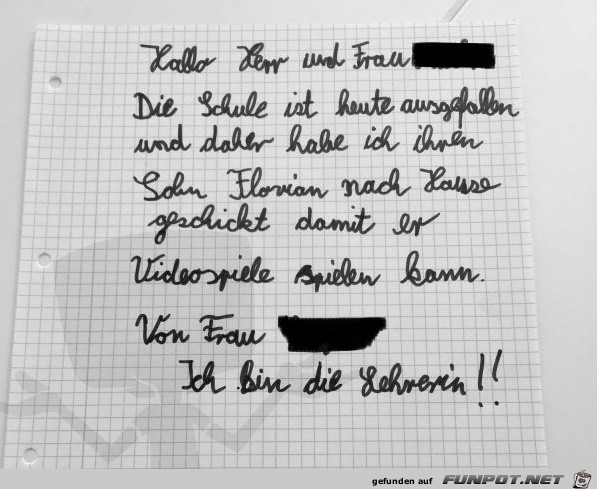 Hallo Herr und Frau
Die Schule ist heute ausgefallen
und daher habe ich ihren
Sohn Florian nach Hausse
geschickt damit er
Videospiele spielen kann.
Von Frau
Ich bin die Lehrerin!!
gefunden auf FUNPOT.NET